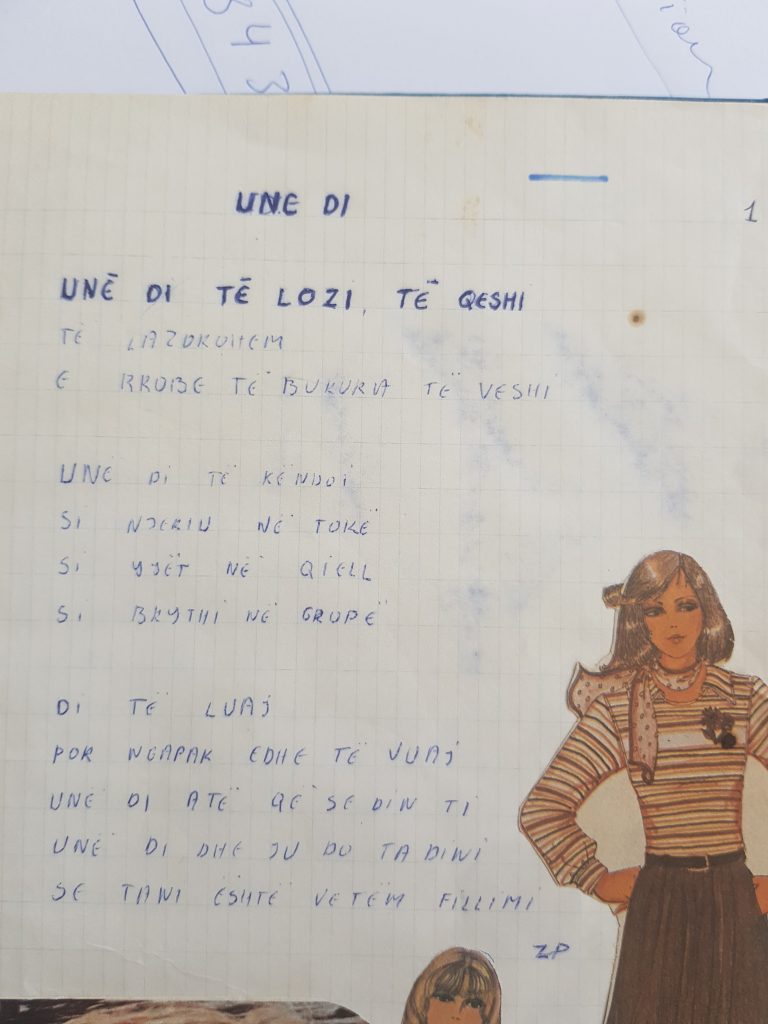 343
UNE DI
1
UNĒ DI TĒ LOZI, TË QESHI
TË LAZDROHEM
E RROBE TË BUKURA TË VESHI
UNË DI TË KËNDOI
SI NJERIU NË TOKË
SI YJËT NË QIELL
SI BRYTHI NË GROPË
DI TË LUAJ
POR NGAPAK EDHE TË VUAJ
UNË DI ATË QË SE DIN TI
UNË DI DHE JU DO TA DINI
SE TANI ËSHTË VETËM FILLIMI
ZP